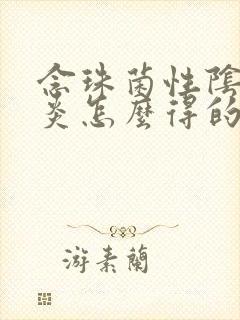 念珠菌性陰
炎怎麼得的
游素蘭